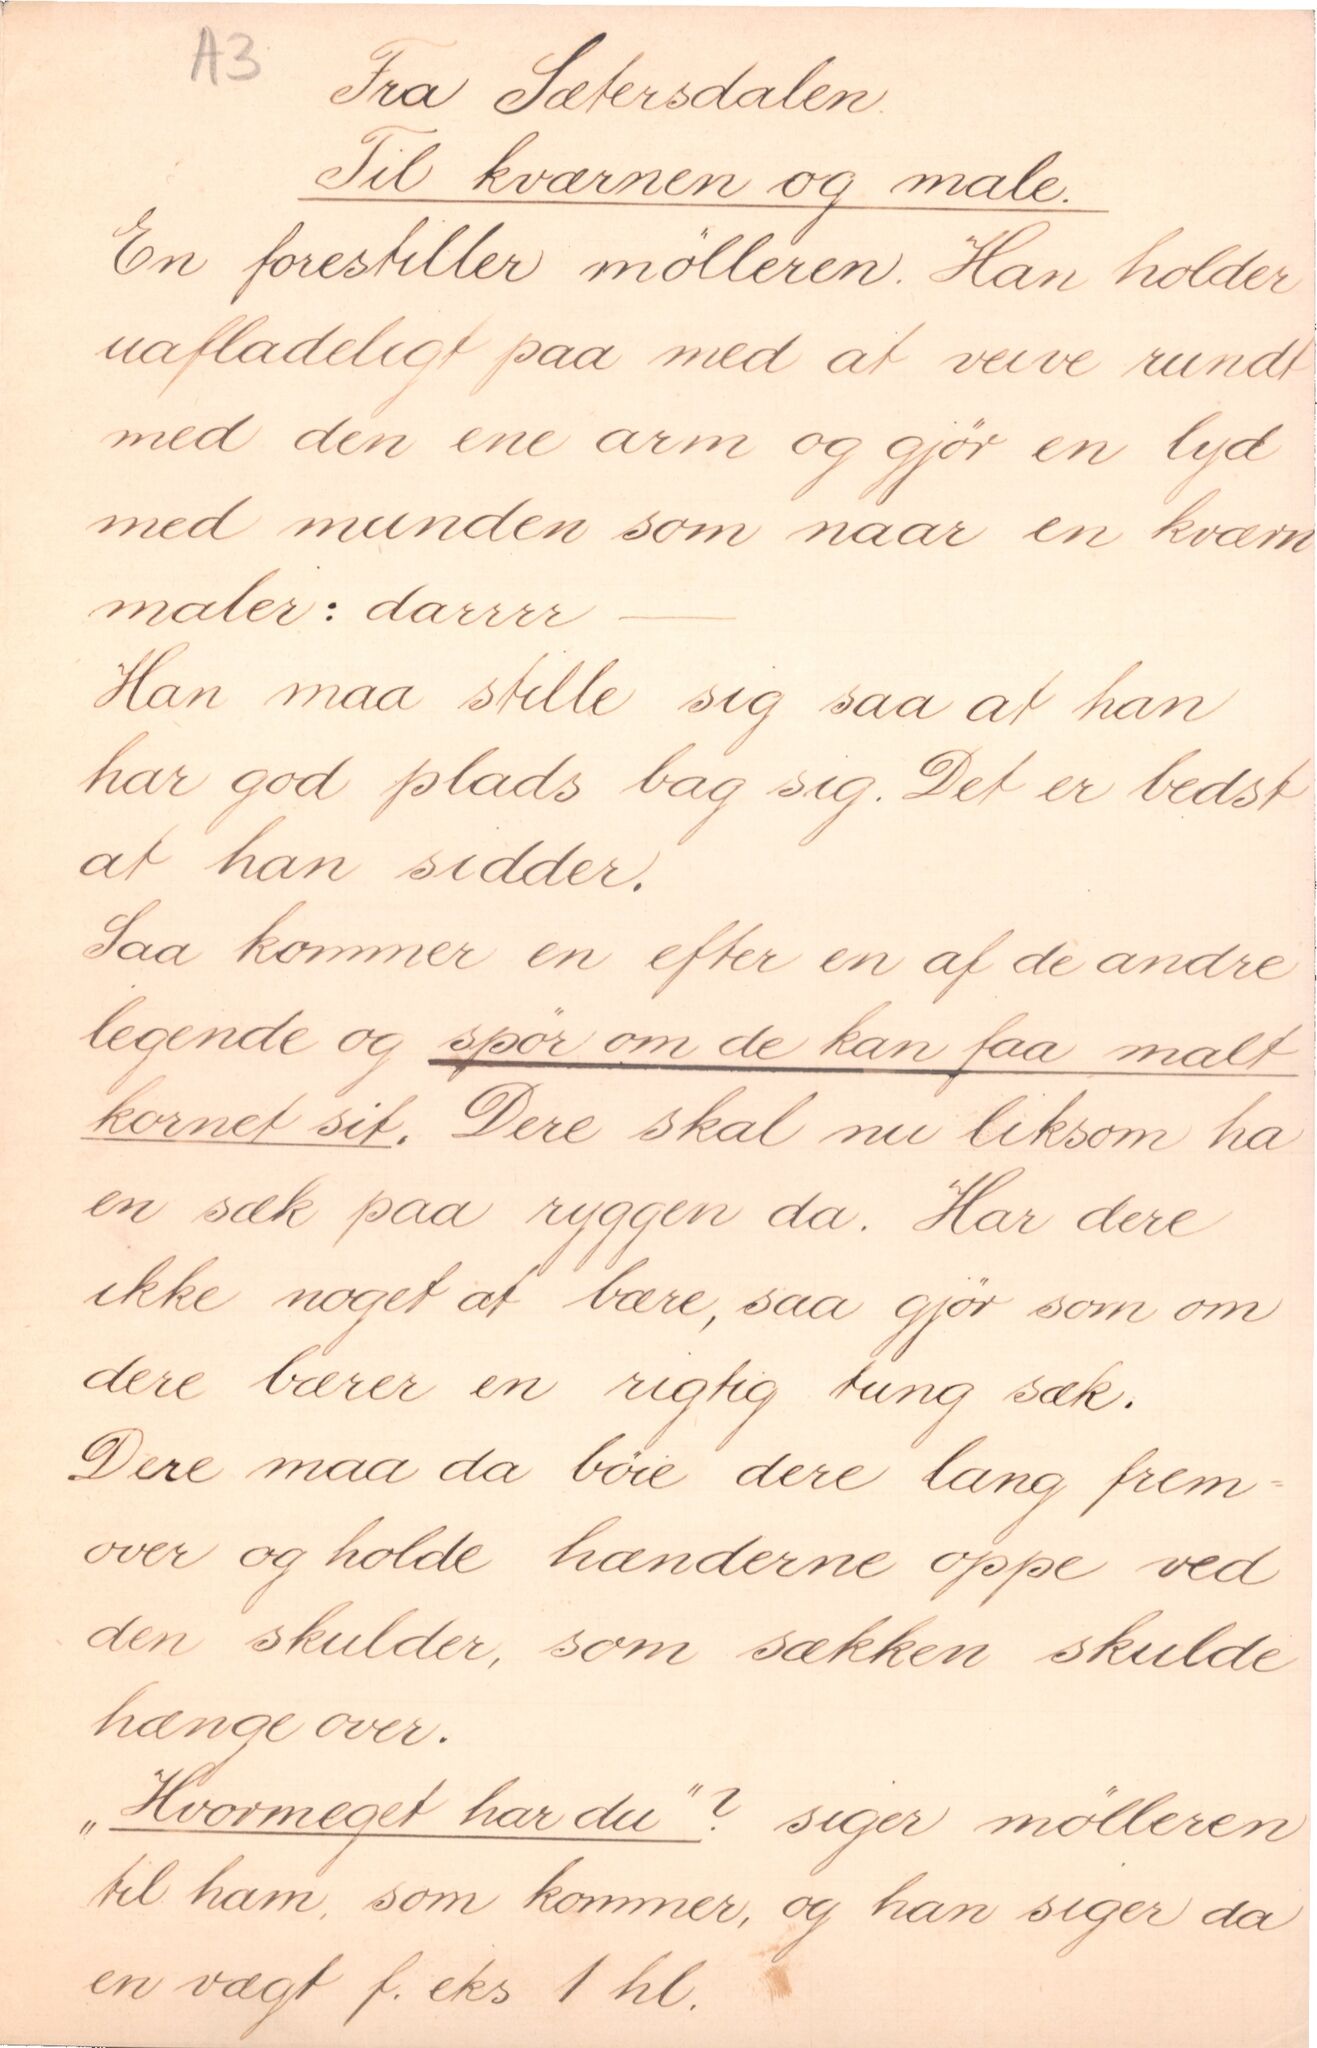 A3
Fra Sætersdalen.
Til kværnen og male.
En forestiller mölleren. Han holder
uafladeligt paa med at veive rundt
med den ene arm og gjör en lyd
med munden som naar en kværn
maler: darrrr —
Han maa stille sig saa at han
har god plads bag sig. Det er bedst
at han sidder.
Saa kommer en efter en af de andre
legende og spör om de kan faa malt
kornet sit. Dere skal nu liksom ha
en sæk paa ryggen da. Har dere
ikke noget at bære, saa gjör som om
dere bærer en rigtig tung sæk.
Dere maa da böie dere lang frem=
over og holde hænderne oppe ved
den skulder, som sækken skulde
hænge over.
„Hvormeget har du"? siger mölleren
til ham, som kommer, og han siger da
en vægt f. eks 1 hl.